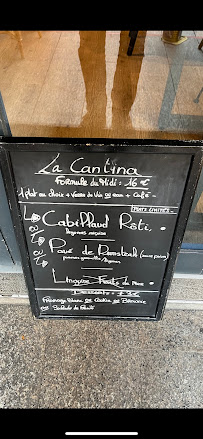 La Cantina
Formule du Midi : 16 €
1 plat au choix + Verre de Vin ou eau + Café
Cabillaud Rôti.
légumes
Pavé de Rumsteak (sauce poivre)
Linguine Fruits de Mer
Desserts :
Fromage Blanc ou Cookie ou Brownie
ou Salade de fruits